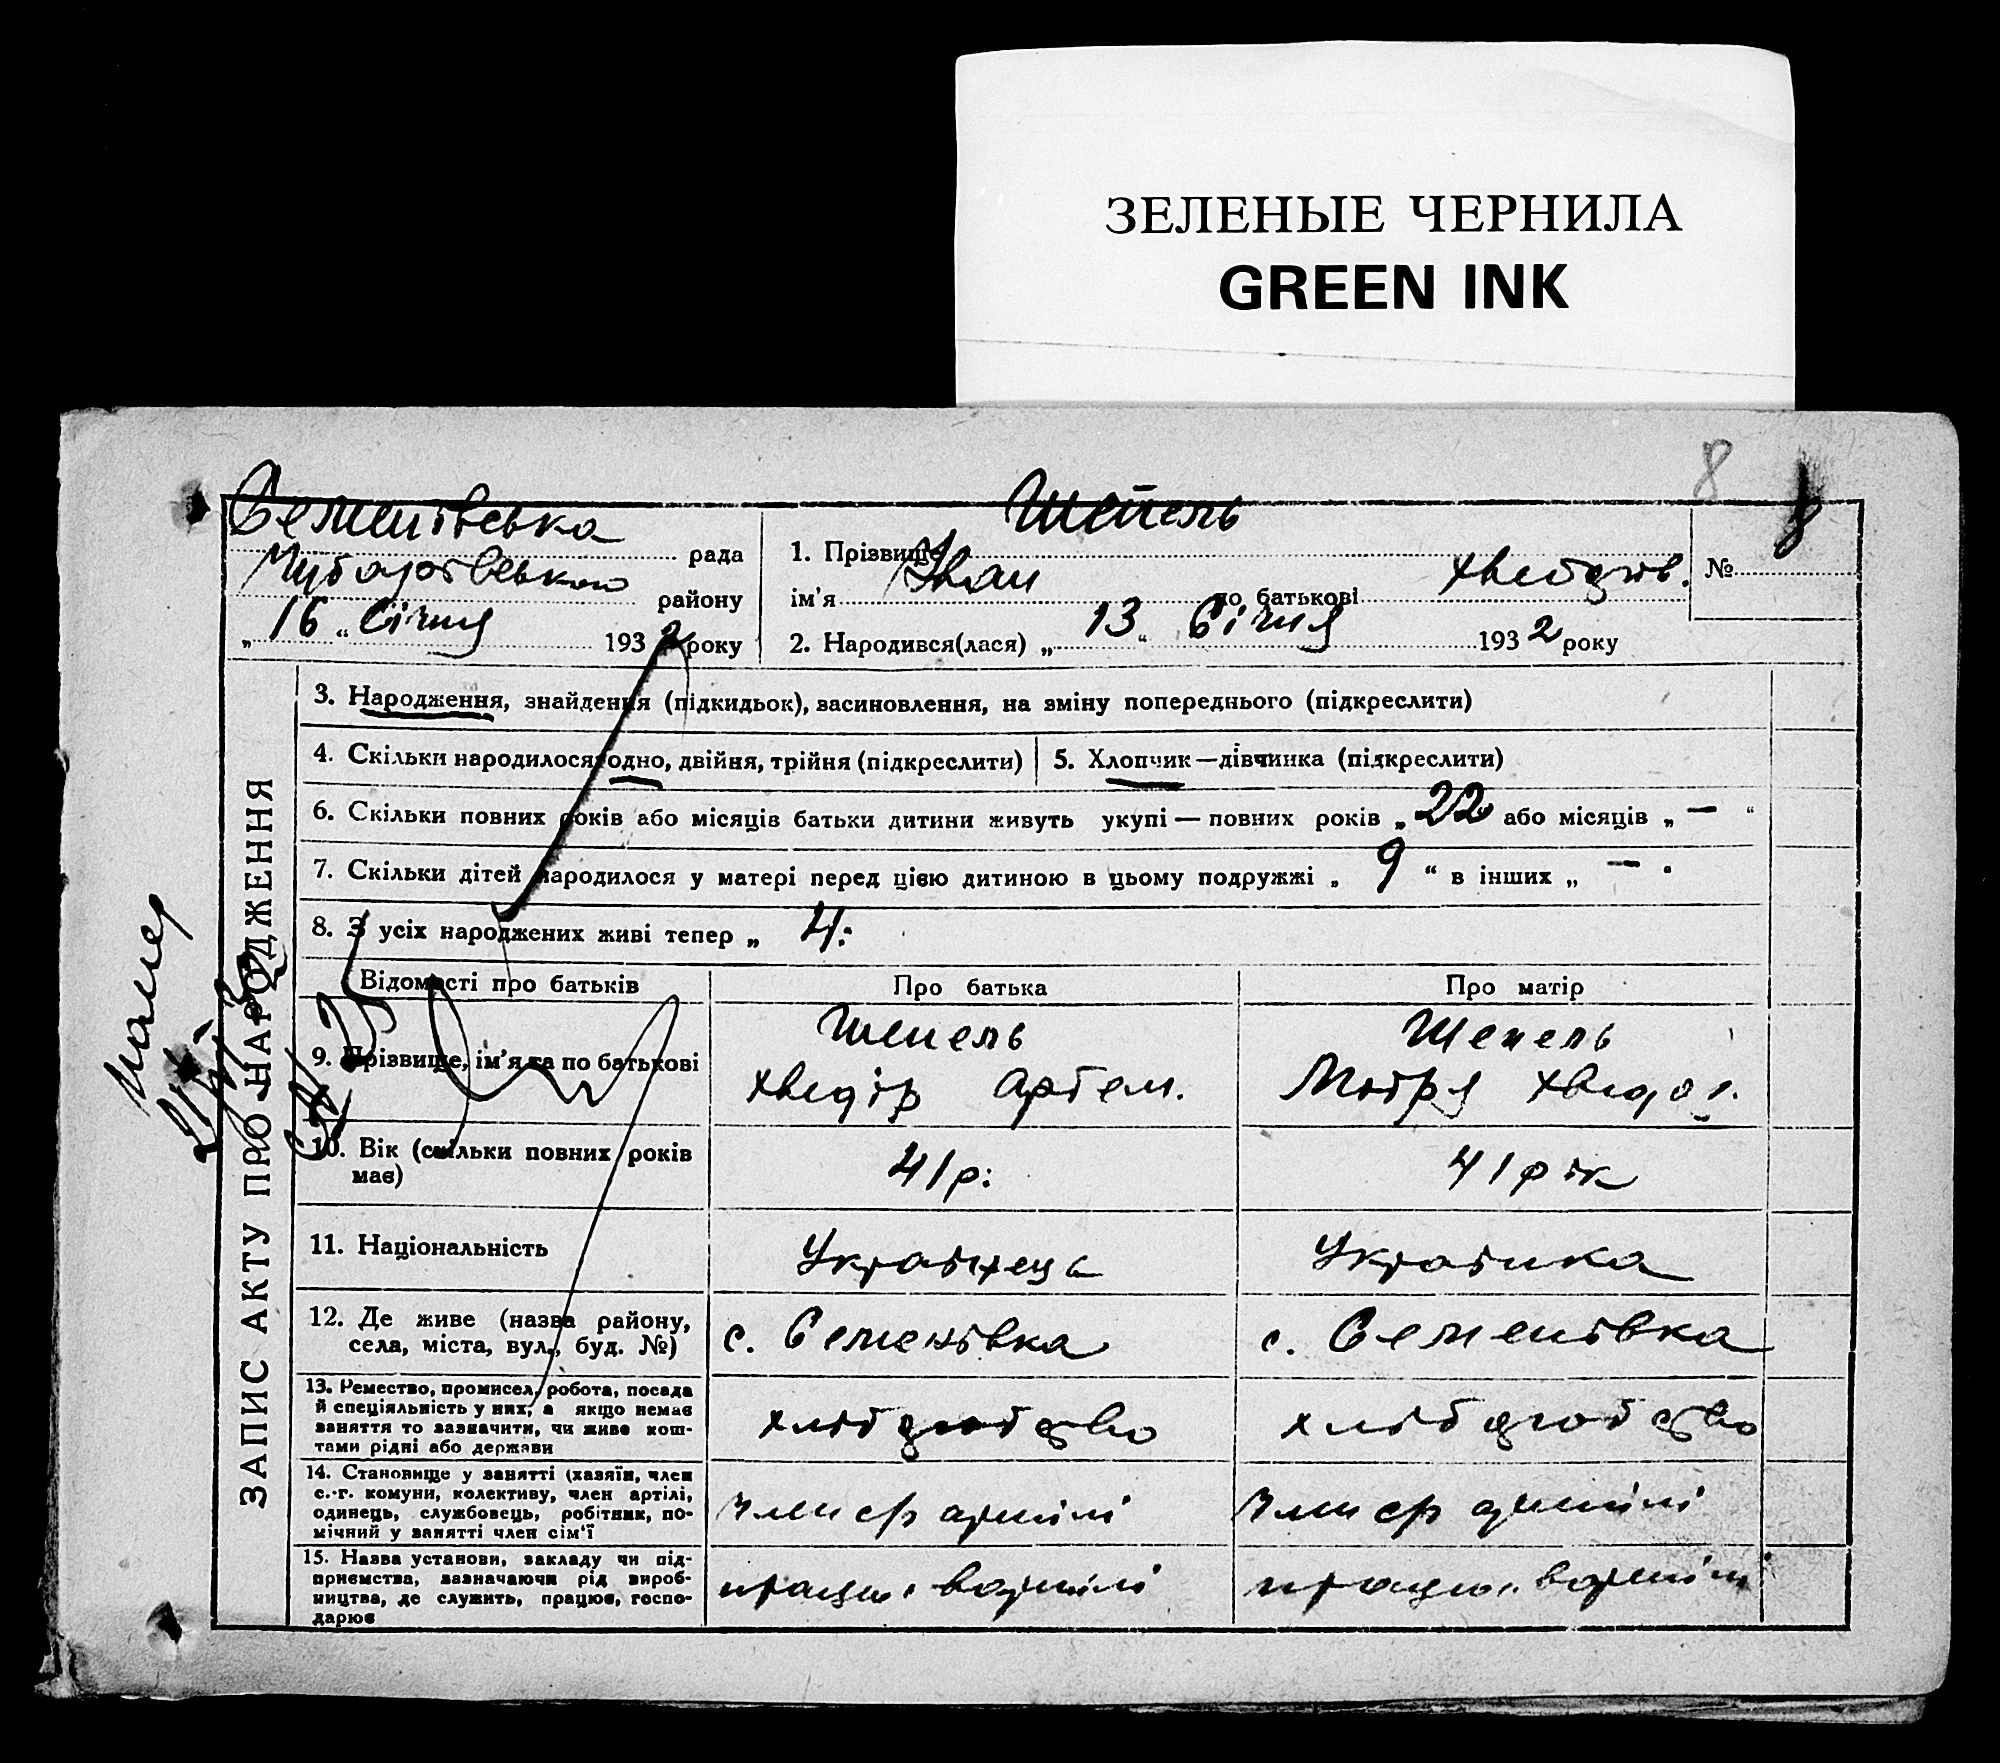 ЗЕЛЕНЫЕ ЧЕРНИЛА
GREEN INK
8
Семенівська рада
району
„ 16 “ Січня 1932 року
1. Прізвище Шепель
ім’я Иван по батькові Хведоров.
2. Народився(лася) „ 13 “ Січня 1932 року
№ 8
ЗАПИС АКТУ ПРО НАРОДЖЕННЯ
3. Народження, знайдення (підкидьок), засиновлення, на зміну попереднього (підкреслити)
4. Скільки народилося: одно, двійня, трійня (підкреслити)
5. Хлопчик—дівчинка (підкреслити)
6. Скільки повних років або місяців батьки дитини живуть укупі — повних років „ 22 або місяців „ — “
7. Скільки дітей народилося у матері перед цією дитиною в цьому подружжі „ 9 “ в інших „ — “
8. З усіх народжених живі тепер „ 4:
Відомості про батьків
Про батька
Про матір
9. Прізвище, ім’я та по батькові
Шепель
Хведір Артем.
Шепель
Мотря Хведол.
10. Вік (скільки повних років
має)
41 р:
41 рік
11. Національність
Українець
Українка
12. Де живе (назва району,
села, міста, вул., буд. №)
с. Семенівка
с. Семенівка
13. Ремество, промисел, робота, посада
й спеціяльність у них, а якщо немає
заняття то зазначити, чи живе кош-
тами рідні або держави
хліборобство
хліборобство
14. Становище у занятті (хазяїн, член
с.-г. комуни, колективу, член артілі,
одинець, службовець, робітник, по-
мічний у занятті член сім’ї
член с/г артілі
член с/г артілі
15. Назва установи, закладу чи під-
приємства, зазначаючи рід вироб-
ництва, де служить, працює, госпо-
дарює
працює в артілі
працює в артілі